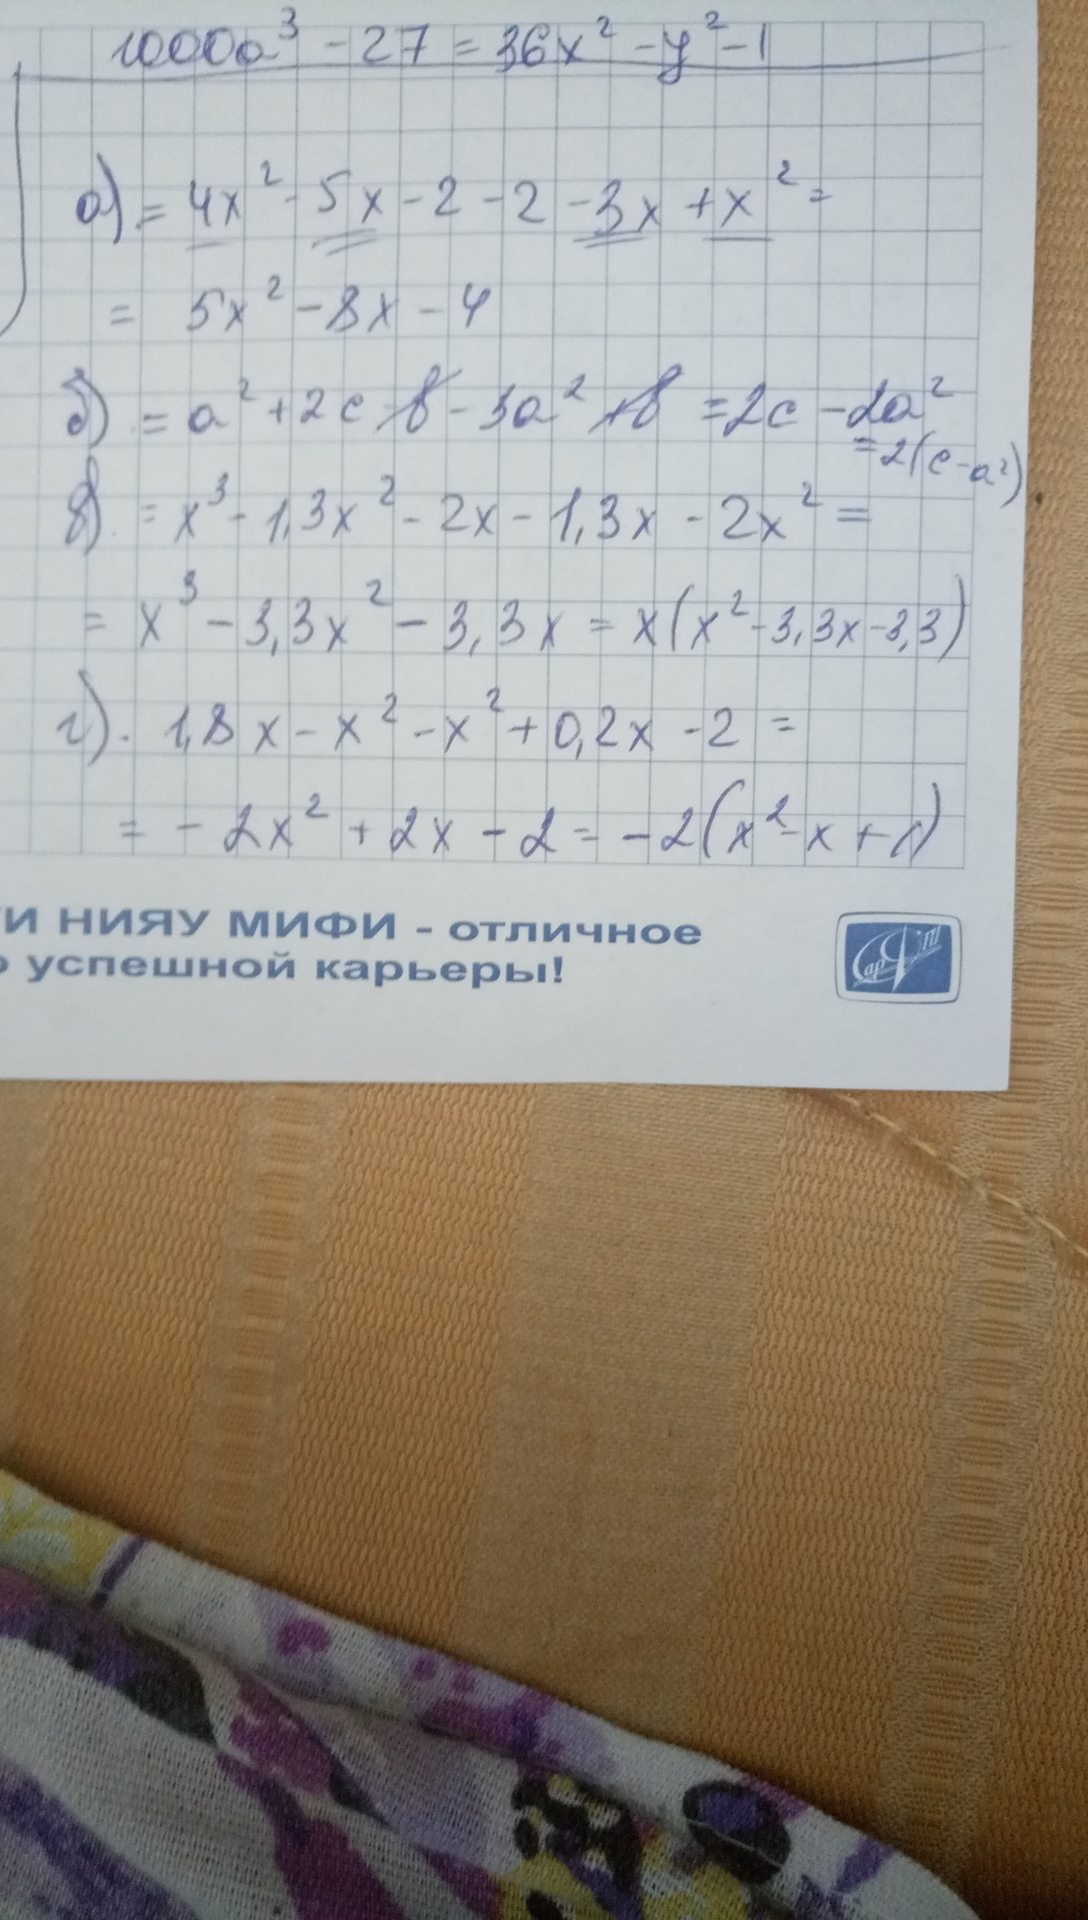 1000a³ - 27 = 36x² - y² - 1
а) = 4x² - 5x - 2 - 2 - 3x + x² =
= 5x² - 8x - 4
б) = a² + 2c - b - 3a² + b = 2c - 2a²
= 2(c - a²)
в) = x³ - 1,3x² - 2x - 1,3x - 2x² =
= x³ - 3,3x² - 3,3x = x(x² - 3,3x - 3,3)
г). 1,8x - x² - x² + 0,2x - 2 =
= - 2x² + 2x - 2 = -2(x² - x + 1)
ТИ НИЯУ МИФИ - отличное
успешной карьеры!